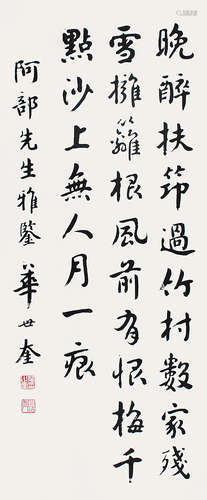 晚醉扶筇過竹村數家殘
雪擁籬根風前有恨梅千
點沙上無人月一痕
阿部先生雅鑒 華世奎